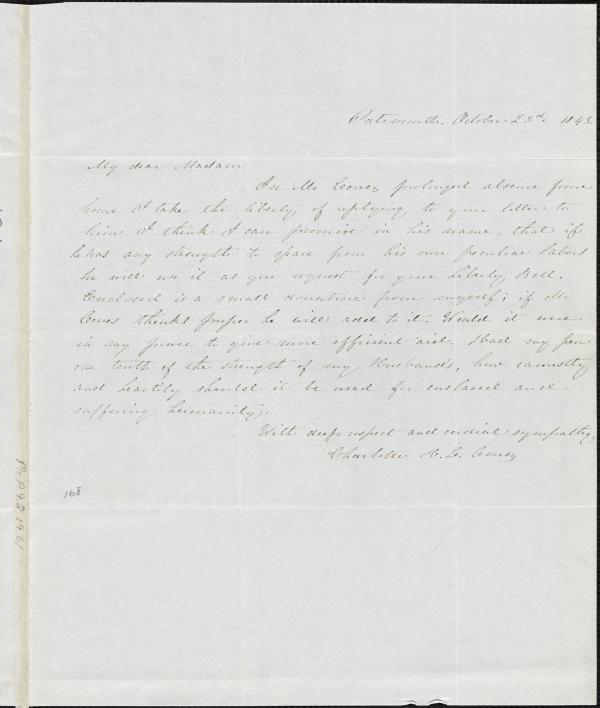 Portsmouth, October 23rd. 1843.
My dear Madam
In Mr Coues prolonged absence from
home I take the liberty of replying to your letter to
him. I think I can promise in his name, that if
he has any strength to spare from his own peculiar labors
he will use it as you request for your Liberty Bell.
Enclosed is a small donation from myself; if Mr
Coues thinks proper he will add to it. Would it were
in my power to give more efficient aid. Had my pen
one tenth of the strength of my Husband's, how earnestly
and heartily should it be used for enslaved and
suffering humanity.
With deep respect and cordial sympathy,
Charlotte H. L. Coues
168